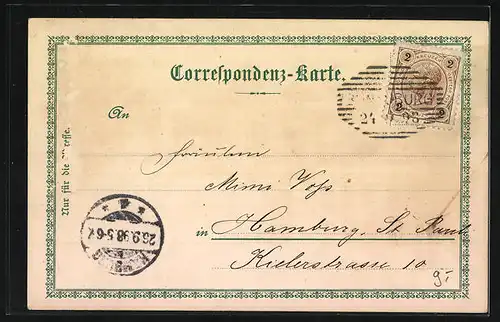 Correspondenz-Karte.
2 KREUZER 2
2 2
BURG
24 9 98
An
Fräulein
Mimi Voss
in Hamburg. St. Pauli
Kielerstrasse 10
Nur für die Adresse.
26.9.98.5-6N.
9.-